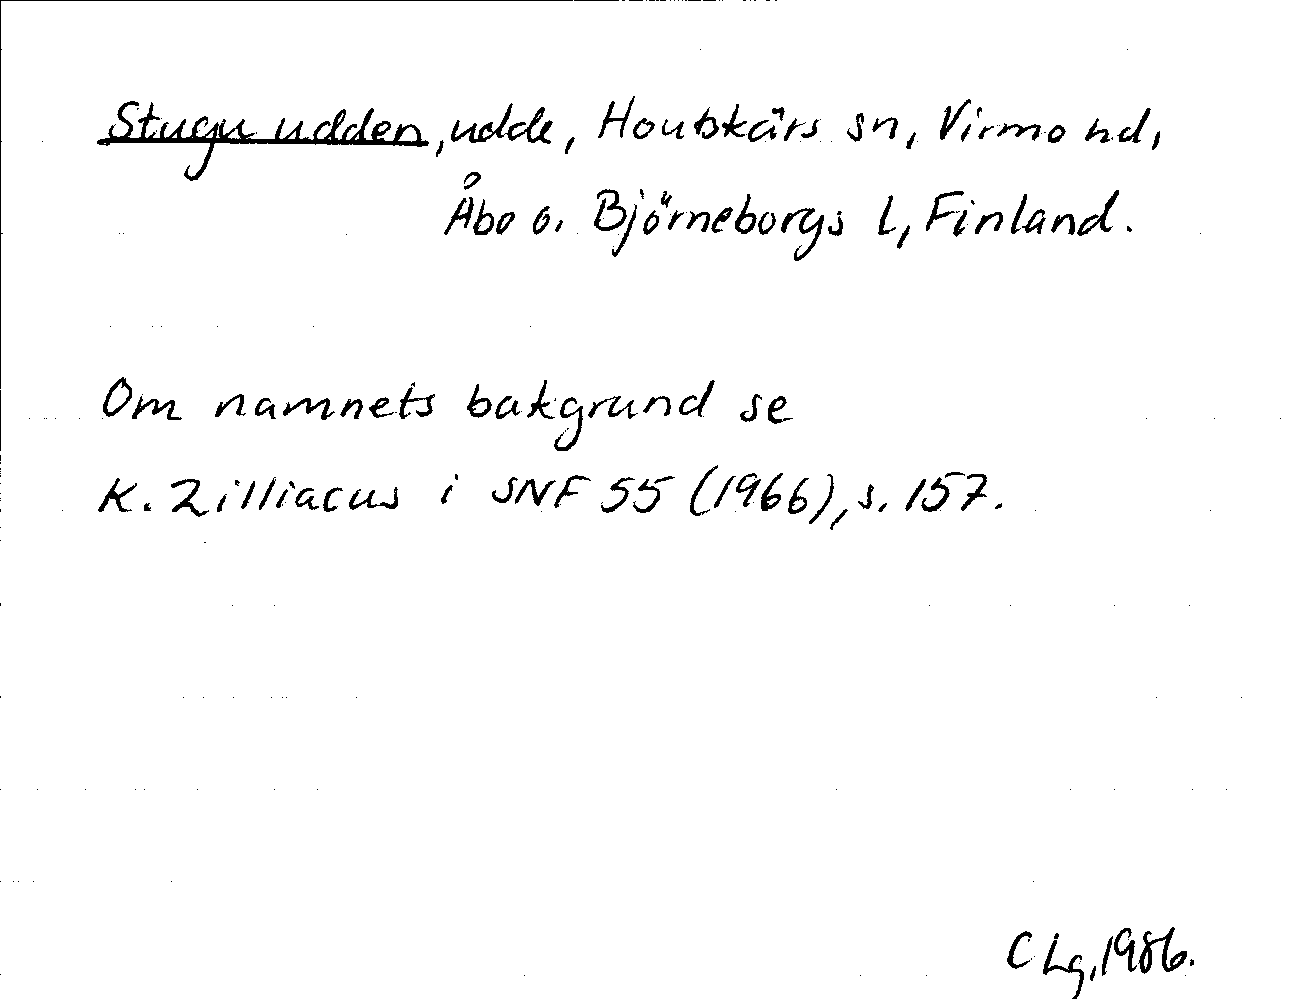 Stugu udden, udde, Houtskärs sn, Virmo hd,
Åbo o. Björneborgs l, Finland.
Om namnets bakgrund se
K. Zilliacus i SNF 55 (1966), s. 157.
C Lg, 1986.